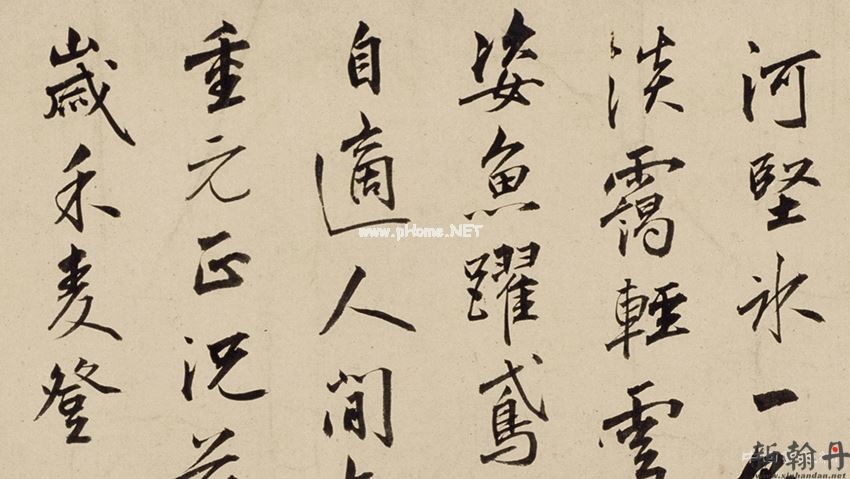 河堅冰一
淡靄輕雲
姿魚躍鳶
自適人間
重元正況
歲禾麦登
www.pHome.NET
新翰丹
www.xinhandan.net